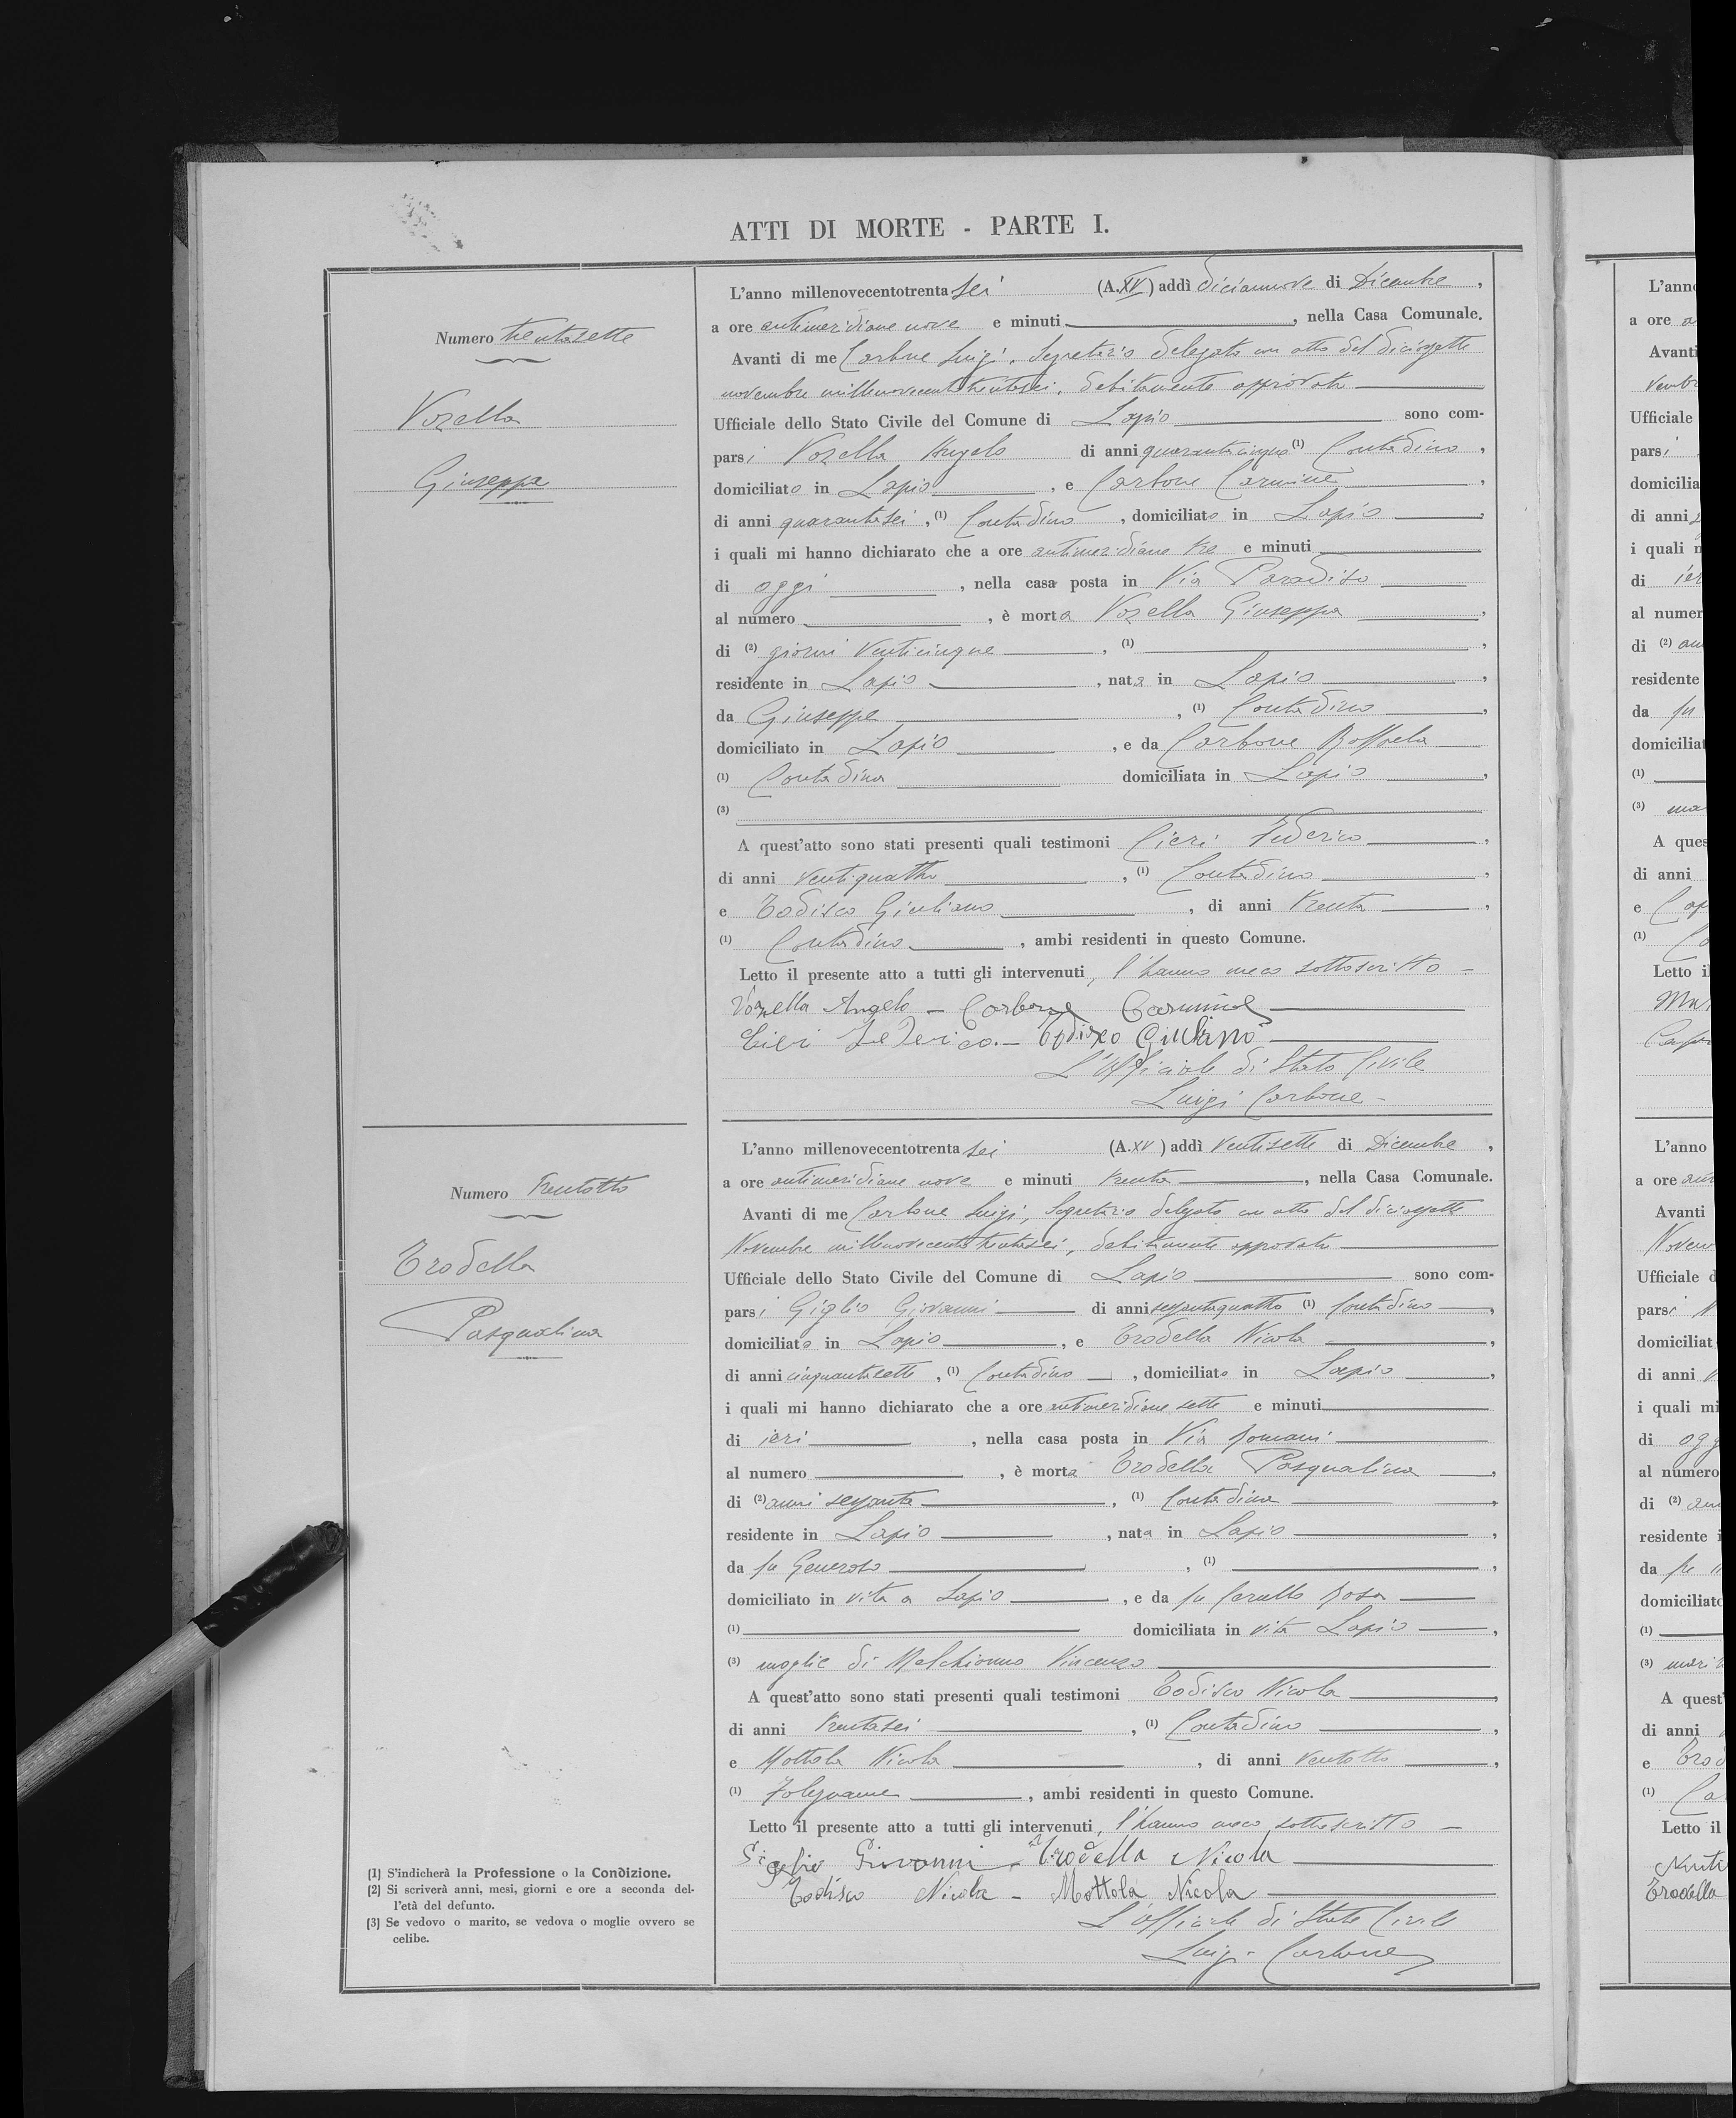 ATTI DI MORTE - PARTE I.
Numero trentasette
Vozella
Giuseppa
L'anno millenovecentotrenta sei (A. XV) addì diciannove di Dicembre,
a ore antimeridiane nove e minuti , nella Casa Comunale.
Avanti di me Carbone Luigi, Segretario delegato con atto del diciassette
novembre millenovecentotrentasei, debitamente approvato
Ufficiale dello Stato Civile del Comune di Lapio sono com-
parsi Vozella Angelo di anni quarantacinque (1) Contadino,
domiciliato in Lapio, e Carbone Carmine,
di anni quarantasei, (1) Contadino, domiciliato in Lapio,
i quali mi hanno dichiarato che a ore antimeridiane tre e minuti
di oggi, nella casa posta in Via Paradiso
al numero , è morta Vozella Giuseppa,
di (2) giorni venticinque, (1) ,
residente in Lapio, nata in Lapio,
da Giuseppe, (1) Contadino,
domiciliato in Lapio, e da Carbone Raffaela
(1) Contadina domiciliata in Lapio,
(3)
A quest'atto sono stati presenti quali testimoni Cieri Federico,
di anni ventiquattro, (1) Contadino,
e Todisco Giuliano, di anni trenta,
(1) Contadino, ambi residenti in questo Comune.
Letto il presente atto a tutti gli intervenuti, l'hanno meco sottoscritto -
Vozella Angelo - Carbone Carmine
Cieri Federico. - Todisco Giuliano
L'Ufficiale di Stato Civile
Luigi Carbone -
Numero trentotto
Trodella
Pasqualina
L'anno millenovecentotrenta sei (A. XV) addì ventisette di Dicembre,
a ore antimeridiane nove e minuti trenta, nella Casa Comunale.
Avanti di me Carbone Luigi, Segretario delegato con atto del diciassette
Novembre millenovecentotrentasei, debitamente approvato
Ufficiale dello Stato Civile del Comune di Lapio sono com-
parsi Giglio Giovanni di anni sessantaquattro (1) Contadino,
domiciliato in Lapio, e Trodella Nicola,
di anni cinquantasette, (1) Contadino, domiciliato in Lapio,
i quali mi hanno dichiarato che a ore antimeridiane sette e minuti
di ieri, nella casa posta in Via
al numero , è morta Trodella Pasqualina,
di (2) anni sessanta, (1) Contadina,
residente in Lapio, nata in Lapio,
da fu Generoso, (1) ,
domiciliato in vita a Lapio, e da fu Carullo Rosa
(1) domiciliata in vita Lapio,
(3) moglie di Melchionno Vincenzo
A quest'atto sono stati presenti quali testimoni Todisco Nicola,
di anni trentasei, (1) Contadino,
e Mottola Nicola, di anni ventotto,
(1) Falegname, ambi residenti in questo Comune.
Letto il presente atto a tutti gli intervenuti, l'hanno meco sottoscritto -
Giglio Giovanni - Trodella Nicola
Todisco Nicola - Mottola Nicola
L'Ufficiale di Stato Civile
Luigi Carbone
(1) S'indicherà la Professione o la Condizione.
(2) Si scriverà anni, mesi, giorni e ore a seconda del-
l'età del defunto.
(3) Se vedovo o marito, se vedova o moglie ovvero se
celibe.